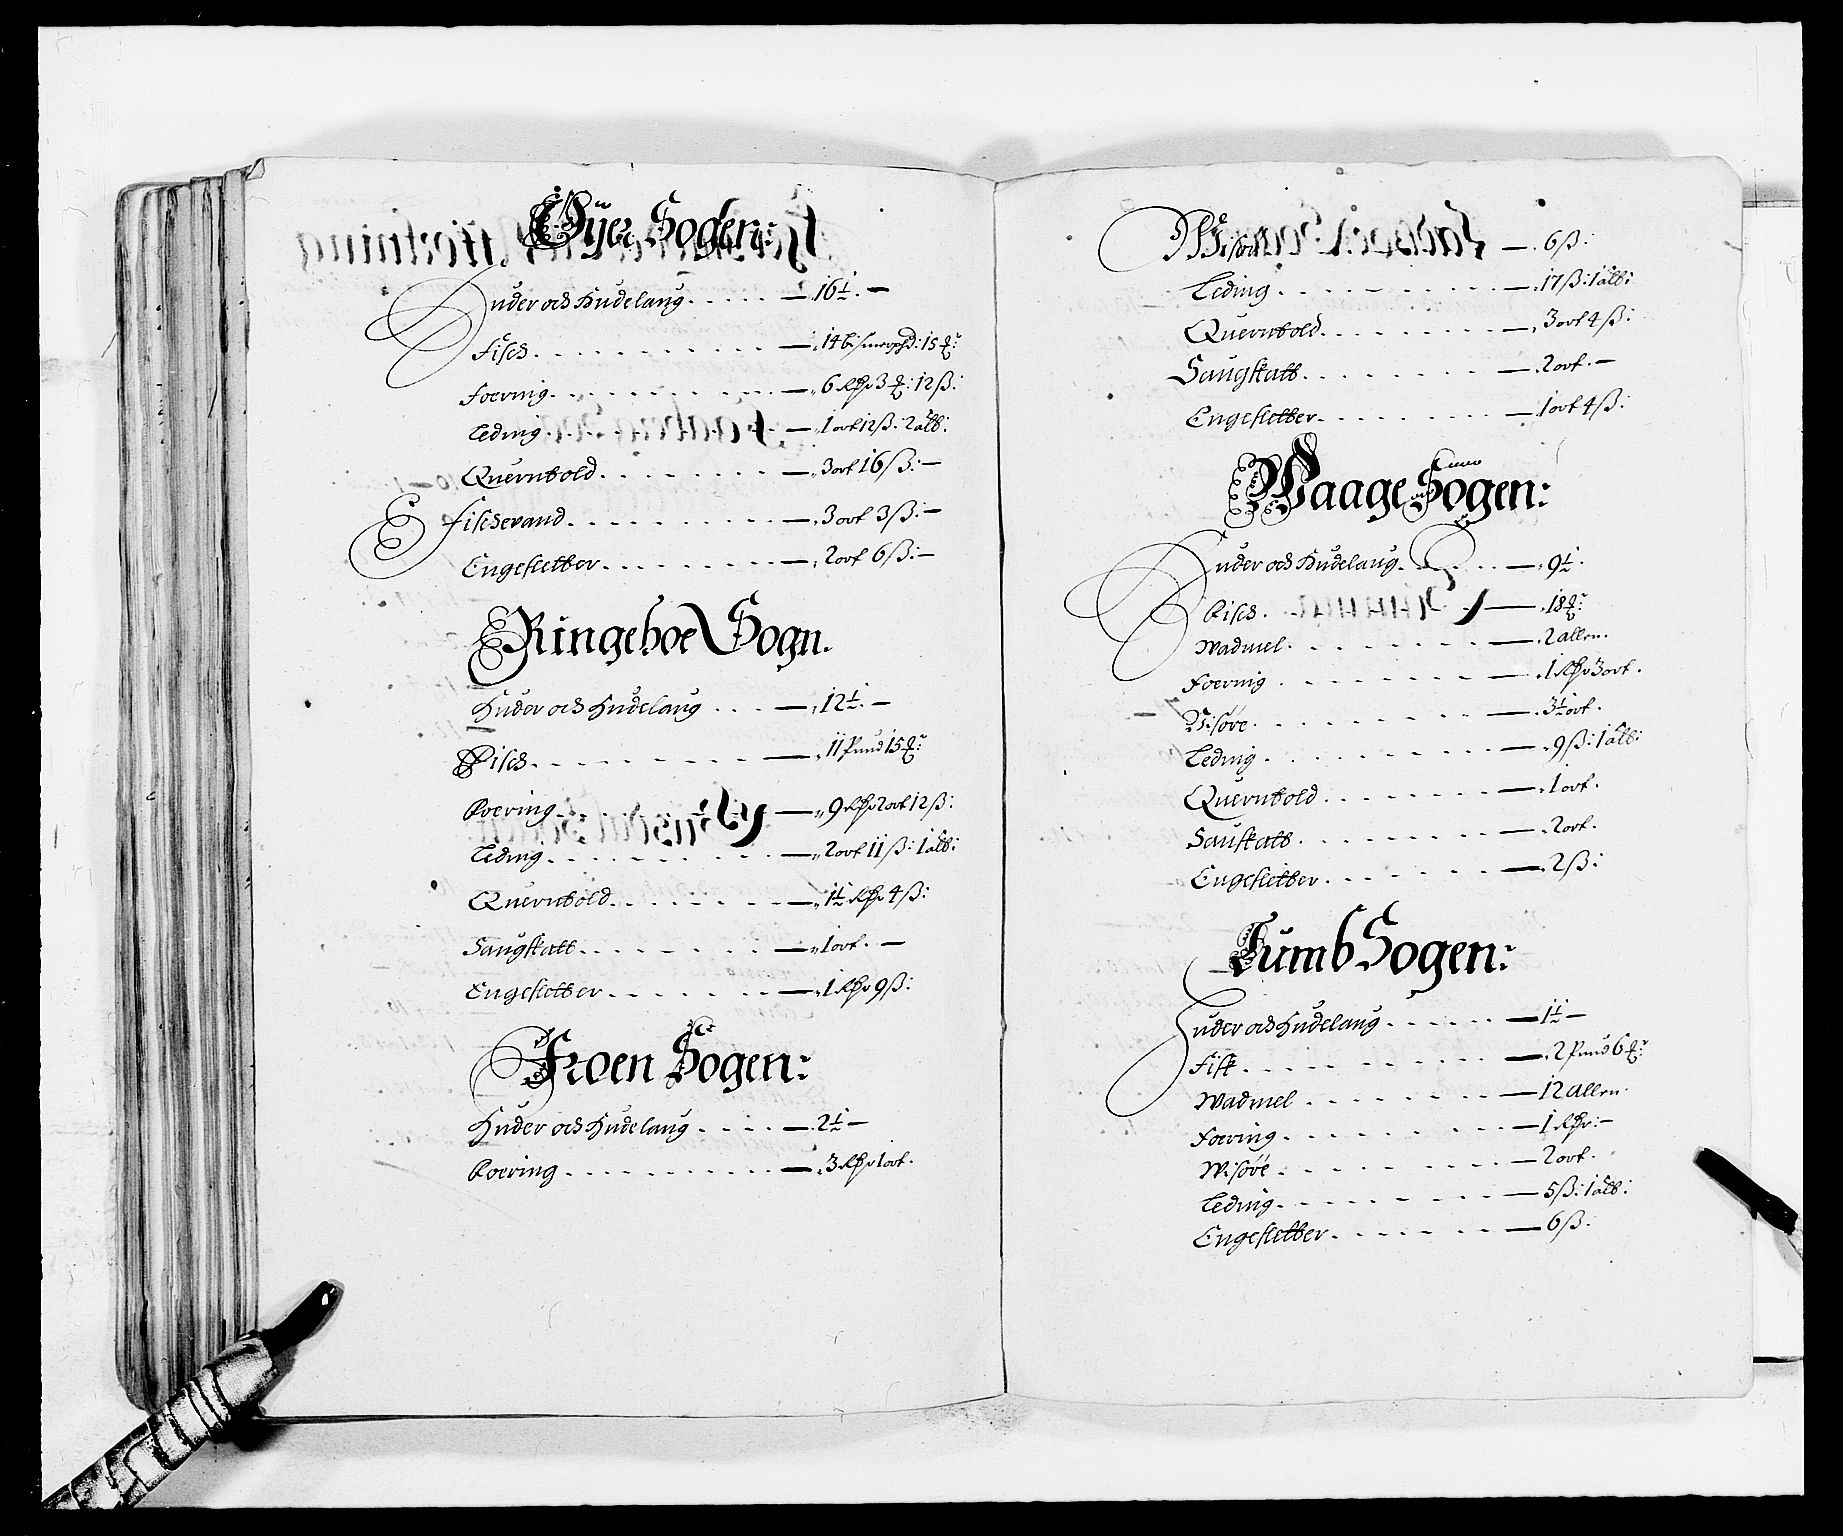 Øÿer Sogen:
Huder och Hudelaug. . . . . — 16½. —
Fisch. . . . . . . . . . . — 14 bismerpd: 15 ℔r:
Foering. . . . . . . . . . — 6 Rdr 3 ℔: 12 ß:
Leding. . . . . . . . . . — 1 ort 12 ß: 2 alb:
Quernbold. . . . . . . . — 3 ort 16 ß: —
Fischevand. . . . . . . . . — 3 ort 3 ß: —
Engesletter. . . . . . . . — 2 ort 6 ß: —
Ringeboe Sogn.
Huder och Hudelaug . . . — 12½. —
Fisch. . . . . . . . . — 11 Pund 15 ℔r
Foering. . . . . . . . — 9 Rdr 2 ort 12 ß:
Leding. . . . . . . . . — 2 ort 11 ß: 1 alb:
Quernbold. . . . . . . — 1½ Rdr 4 ß:
Saugskatt. . . . . . . . — 1 ort. —
Engesletter. . . . . . . — 1 Rdr 9 ß:
Froen Sogen:
Huder och Hudelaug . . . . — 2½ —
Foering. . . . . . . . . . — 3 Rdr 1 ort.
Wisøre — 6 ß:
Leding. . . . . . . . — 17 ß: 1 alb:
Quernbold. . . . . . . . — 3 ort 4 ß:
Saugskatt. . . . . . . . — 2 ort. —
Engesletter. . . . . . . — 1 ort 4 ß:
Waage Sogen:
Huder och Hudelaug. . . . . — 9½.
Fisch. — 18 ℔r:
Wadmel. . . . . . . . — 2 allen.
Foering . . . . . . . — 1 Rdr 3 ort.
Visøre. . . . . . . . — 3½ ort.
Leding. . . . . . . . — 9 ß: 1 alb:
Quernbold. . . . . . . — 1 ort.
Sauskatt. . . . . . . . — 2 ort.
Engesletter. . . . . . . — 2 ß:
Lumb Sogen:
Huder och Hudelaug. . . . . . — 1½ —
Fisk. . . . . . . . . — 2 Pund 6 ℔r
Wadmel . . . . . . . — 12 allen.
Foering. . . . . . . . — 1 Rdr: —
Wisøre. . . . . . . . — 2 ort.
Leding. . . . . . . . — 5 ß: 1 alb:
Engesletter. . . . . . . — 6 ß.